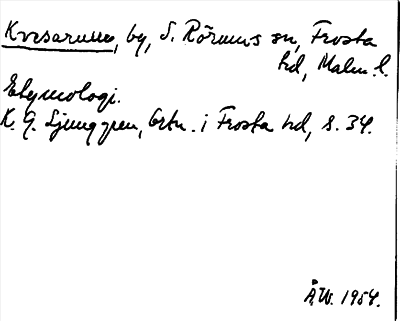 Kvesarums, by, S. Rörums sn, Frosta
hd, Malm. l.
Etymologi.
K. G. Ljunggren, Ortn. i Frosta hd, s. 34.
Å.W. 1954.